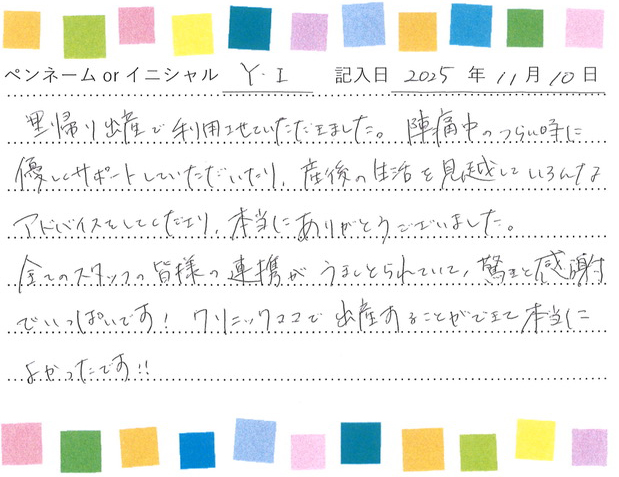 ペンネーム or イニシャル Y・I 記入日 2025 年 11 月 10 日
里帰り出産で利用させていただきました。陣痛中のつらい時に
優しくサポートしていただいたり、産後の生活を見越していろんな
アドバイスをしてくださり、本当にありがとうございました。
全てのスタッフの皆様の連携がうまくとられていて、驚きと感謝
でいっぱいです！クリニックココで出産することができて本当に
よかったです！！